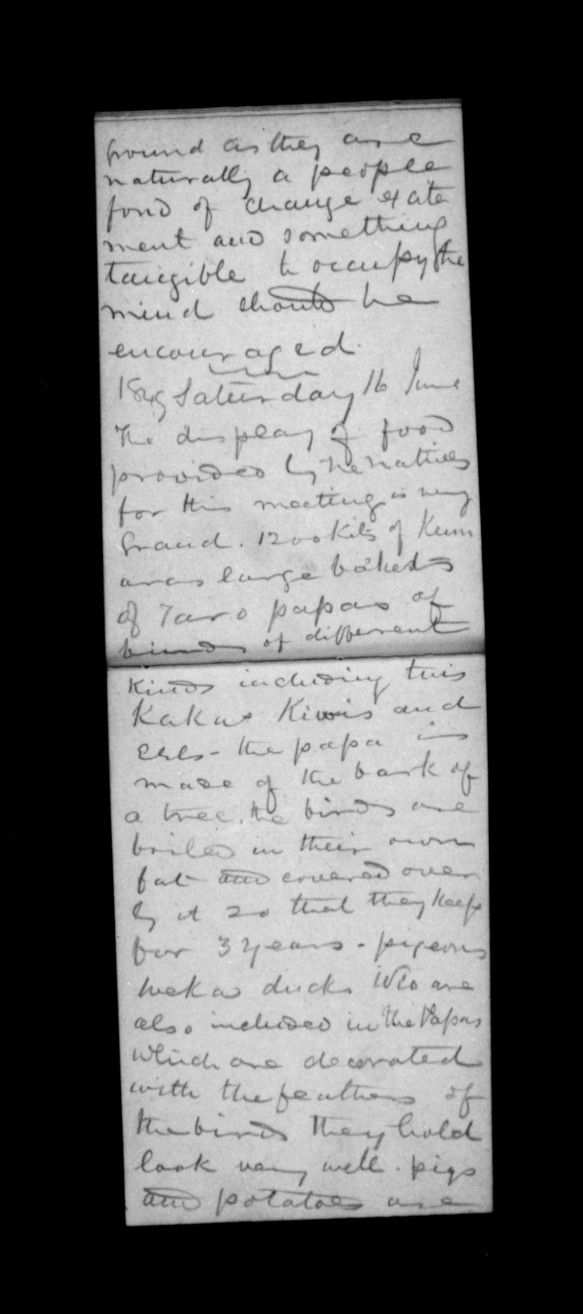 pound as they are
naturally a people
fond of change excite
ment and something
tangible to occupy the
mind should be
encouraged.
1849 Saturday 16 June
The display of food
provided by the natives
for this meeting is very
Grand. 1200 Kits of Kum
aras large baskets
of Taro papas of
birds of different
Kinds including tuis
Kakas Kiwis and
eels - the papa is
made of the bark of
a tree. the birds are
boiled in their own
fat and covered over
by it so that they keep
for 3 years - pigeons
wekas ducks Wio are
also included in the Papas
which are decorated
with the feathers of
the birds they hold
look very well. pigs
and potatoes are